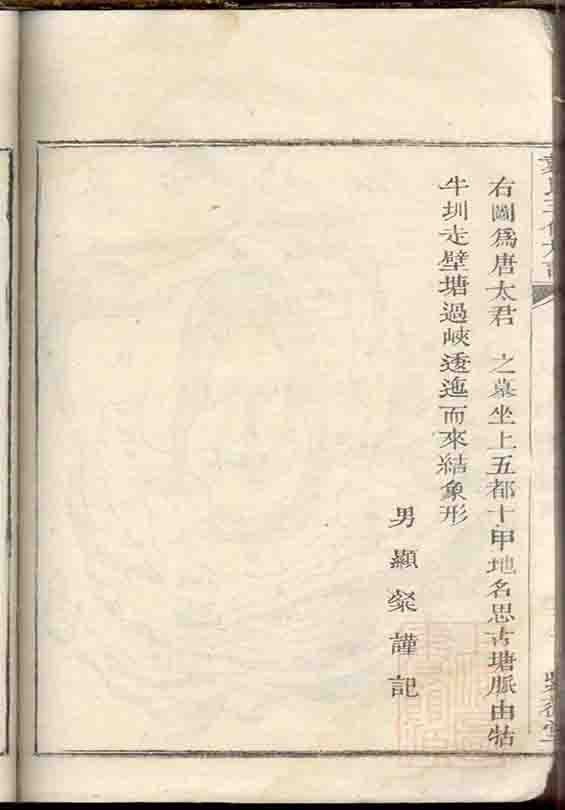 右圖爲唐太君 之墓坐上五都十甲地名思古塘脈由牯
牛圳走壁塘過峽透迤而來結象形
男顯粲謹記